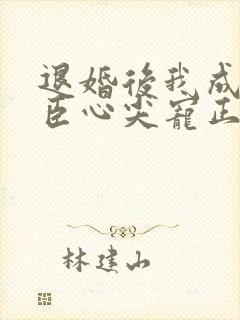 退婚後我成
臣心尖寵正
林建山